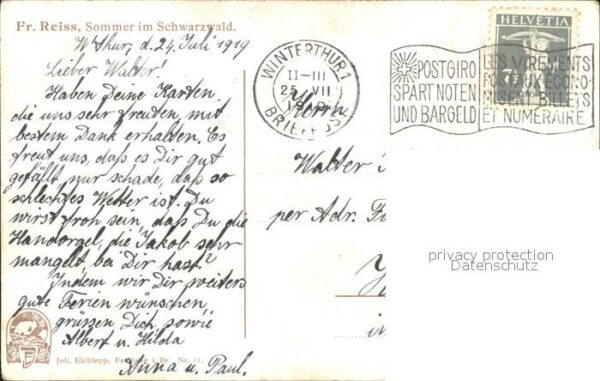 Fr. Reiss, Sommer im Schwarzwald.
W'thur, d. 24. Juli 1919
Lieber Walter!
Haben Deine Karten,
die uns sehr freuten, mit
bestem Dank erhalten. Es
freut uns, dass es Dir gut
gefällt nur schade, dass so
schlechtes Wetter ist. Du
wirst froh sein, dass Du die
Handorgel, die Jakob sehr
mangelt, bei Dir hast?
Indem wir Dir weiters
gute Ferien wünschen
grüssen Dich sowie
Albert u. Hilda
Anna u. Paul.
Joh. Elchlepp, Freiburg i. Br. Nr. 11.
WINTERTHUR 1
II-III
25. VII
BRIEF
HELVETIA
7½
POSTGIRO
SPART NOTEN
UND BARGELD
LES VIREMENTS
POSTAUX ÉCONO-
MISENT BILLETS
ET NUMÉRAIRE
Herrn
Walter
per Adr.
privacy protection
Datenschutz